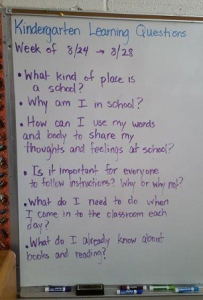 Kindergarten Learning Questions
Week of 8/24 → 8/28
• What kind of place is
a school?
• Why am I in school?
• How can I use my words
and body to share my
thoughts and feelings at school?
• Is it important for everyone
to follow instructions? Why or why not?
• What do I need to do when
I come in to the classroom each
day?
• What do I already know about
books and reading?